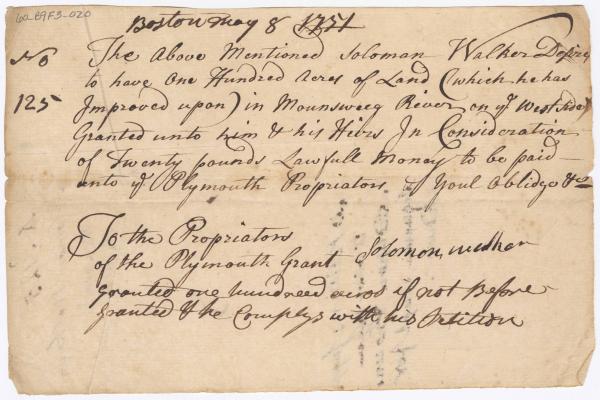 60.89F3-020
Boston May 8 1751
No 125
The Above Mentioned Soloman Walker Desires
to have One Hundred Acres of Land (which he has
Improved upon) in Mounsweeg River on ye West side
Granted unto him & his Hiers In Consideration
of Twenty pounds Lawfull Money to be paid
unto ye Plymouth Propriators, & Youl Oblidge &c
To the Propriators
of the Plymouth Grant Solomon walker
Granted one hundred acros if not Before
Granted & he Complys with his Petition